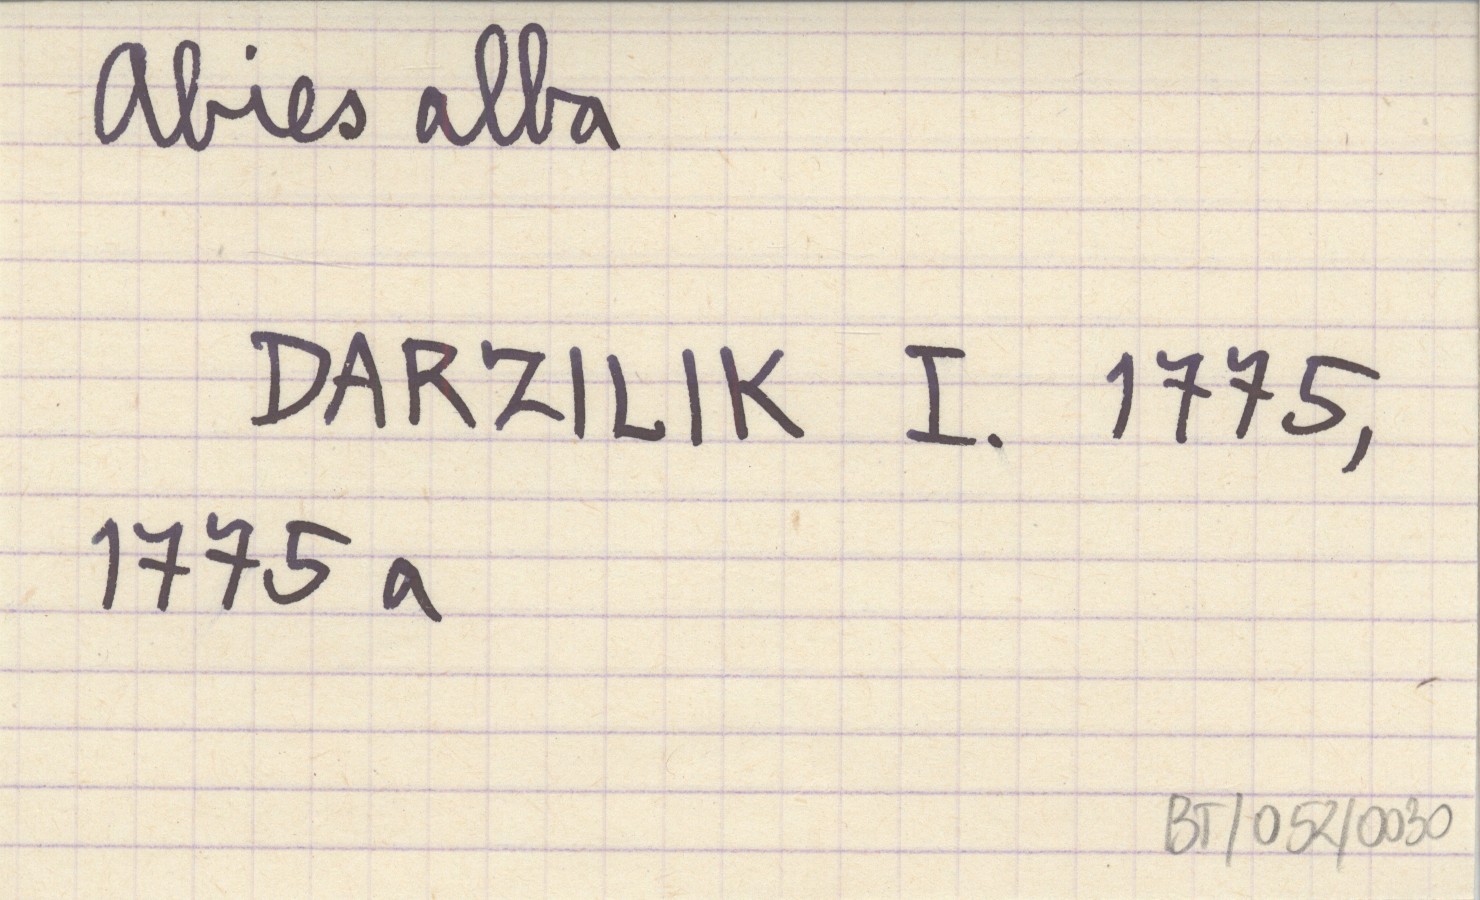 Abies alba
DARZILIK I. 1775,
1775 a
BT/052/0030